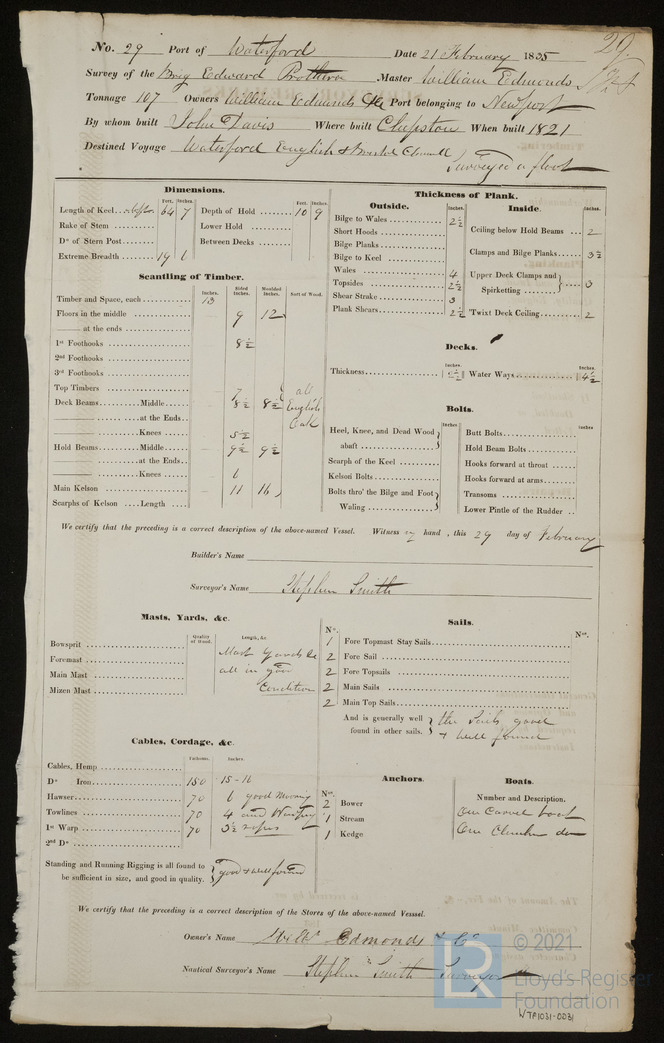 29
No. 29 Port of Waterford Date 21 February 1835
Survey of the Brig Edward Protheroe Master William Edmonds
Tonnage 107 Owners William Edmunds &c Port belonging to Newport
By whom built John Davis Where built Chepstow When built 1821
Destined Voyage Waterford English & Bristol Channell
Surveyed a float
Dimensions.
Feet. Inches.
Length of Keel 64 7
Rake of Stem
Do. of Stern Post
Extreme Breadth 19 6
Feet. Inches.
Depth of Hold 10 9
Lower Hold
Between Decks
Scantling of Timber.
Inches. Sided Inches. Moulded Inches. Sort of Wood.
Timber and Space, each 13
Floors in the middle 9 12
at the ends
1st Foothooks 8½
2nd Foothooks
3rd Foothooks
Top Timbers 7 6 all
Deck Beams Middle 8½ 8½ English
at the Ends Oak
Knees 5½
Hold Beams Middle 9½ 9½
at the Ends
Knees 6
Main Kelson 11 16
Scarphs of Kelson Length
Thickness of Plank.
Outside. Inches.
Bilge to Wales 2½
Short Hoods
Bilge Planks
Bilge to Keel
Wales 4
Topsides 2½
Shear Strake 3
Plank Shears 2½
Inside. Inches.
Ceiling below Hold Beams 2
Clamps and Bilge Planks 3½
Upper Deck Clamps and Spirketting 3
'Twixt Deck Ceiling 2
Decks.
Inches. Inches.
Thickness 2½ Water Ways 4½
Bolts.
Inches
Heel, Knee, and Dead Wood abaft
Scarph of the Keel
Kelson Bolts
Bolts thro' the Bilge and Foot Waling
Inches
Butt Bolts
Hold Beam Bolts
Hooks forward at throat
Hooks forward at arms
Transoms
Lower Pintle of the Rudder
We certify that the preceding is a correct description of the above-named Vessel. Witness my hand, this 29 day of February
Builder's Name
Surveyor's Name Stephen Smith
Masts, Yards, &c.
Quality of Wood. Length, &c.
Bowsprit
Foremast
Main Mast
Mizen Mast
Mast Yards &c
all in good
Condition
Sails.
No. Nos.
1 Fore Topmast Stay Sails
2 Fore Sail
2 Fore Topsails
2 Main Sails
2 Main Top Sails
And is generally well found in other sails. the Sails good
& well found
Cables, Cordage, &c.
Fathoms. Inches
Cables, Hemp
Do Iron 150 15-16
Hawser 70 6 good Mooring
Towlines 70 4 and Warping
1st Warp 70 3½ ropes
2nd Do
Standing and Running Rigging is all found to be sufficient in size, and good in quality. good & well found
Anchors.
No.
2 Bower
1 Stream
1 Kedge
Boats.
Number and Description.
One Carvel boat
One Clincher do
We certify that the preceding is a correct description of the Stores of the above-named Vesssel.
Owner's Name Willm Edmonds & Co
Nautical Surveyor's Name Stephen Smith Surveyor
© 2021
LR
Lloyd's Register
Foundation
WTA1031-0031